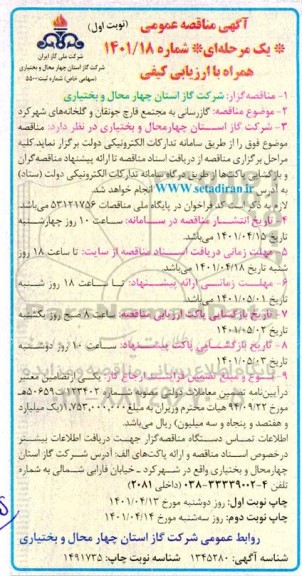 آگهی مناقصه عمومی (نوبت اول)
* یک مرحله‌ای* شماره ۱۴۰۱/۱۸
همراه با ارزیابی کیفی
شرکت ملی گاز ایران
شرکت گاز استان چهار محال و بختیاری
(سهامی خاص) شماره ثبت: ۵۵۰۰
۱- مناقصه‌گزار: شرکت گاز استان چهار محال و بختیاری
۲- موضوع مناقصه: گازرسانی به مجتمع قارچ جونقان و گلخانه‌های شهرکرد
۳- شرکت گاز استان چهارمحال و بختیاری در نظر دارد: مناقصه
موضوع فوق را از طریق سامانه تدارکات الکترونیکی دولت برگزار نماید. کلیه
مراحل برگزاری مناقصه از دریافت اسناد مناقصه تا ارائه پیشنهاد مناقصه‌گران
و بازگشایی پاکت‌ها از طریق درگاه سامانه تدارکات الکترونیکی دولت (ستاد)
به آدرس www.setadiran.ir انجام خواهد شد.
لازم به ذکر است کد فراخوان در پایگاه ملی مناقصات ۵۳۱۲۱۷۵۶ می‌باشد.
۴- تاریخ انتشار مناقصه در سامانه: ساعت ۱۰ روز چهارشنبه
تاریخ ۱۴۰۱/۰۴/۱۵ می‌باشد.
۵- مهلت زمانی دریافت اسناد مناقصه از سایت: تا ساعت ۱۸ روز
شنبه تاریخ ۱۴۰۱/۰۴/۱۸ می‌باشد.
۶- مهلت زمانی ارائه پیشنهاد: تا ساعت ۱۸ روز شنبه
تاریخ ۱۴۰۱/۰۵/۰۱ می‌باشد.
۷- تاریخ بازگشایی پاکت ارزیابی مناقصه: ساعت ۸ صبح روز یکشنبه
تاریخ ۱۴۰۱/۰۵/۰۲
۸- تاریخ بازگشایی پاکت پیشنهاد: ساعت ۱۰ روز دوشنبه
تاریخ ۱۴۰۱/۰۵/۰۳ می‌باشد.
۹- نوع و مبلغ تضمین فرایند ارجاع کار: یکی از تضامین معتبر
درآیین‌نامه تضمین معاملات دولتی مصوبه شماره ۱۲۳۴۰۲/ت۵۰۶۵۹هـ
مورخ ۹۴/۰۹/۲۲ هیات محترم وزیران به مبلغ ۱,۷۵۳,۰۰۰,۰۰۰ (یک میلیارد
و هفتصد و پنجاه و سه میلیون) ریال می‌باشد.
اطلاعات تماس دستگاه مناقصه‌گزار جهت دریافت اطلاعات بیشتر
درخصوص اسناد مناقصه و ارائه پاکت‌های الف: آدرس شرکت گاز استان
چهارمحال و بختیاری واقع در شهرکرد ـ خیابان فارابی شمالی به شماره
تلفن ۴-۳۳۳۳۹۰۰۲-۰۳۸ (داخلی ۲۰۸۱)
چاپ نوبت اول: روز دوشنبه مورخ ۱۴۰۱/۰۴/۱۳
چاپ نوبت دوم: روز سه‌شنبه مورخ ۱۴۰۱/۰۴/۱۴
روابط عمومی شرکت گاز استان چهار محال و بختیاری
شناسه آگهی: ۱۳۴۵۲۸۰ شناسه نوبت چاپ: ۱۴۹۱۷۳۵